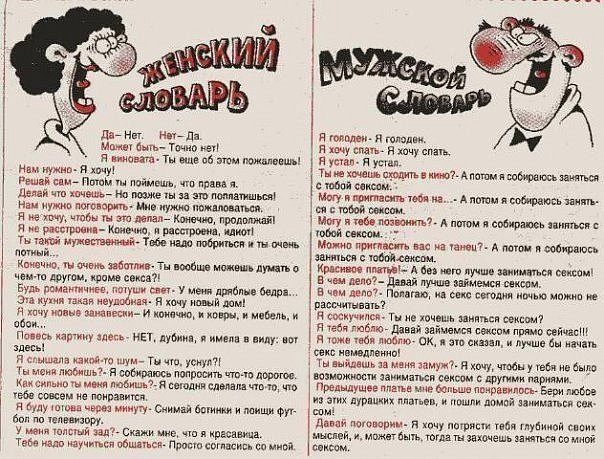 ЖЕНСКИЙ
СЛОВАРЬ
Да– Нет. Нет– Да.
Может быть– Точно нет!
Я виновата- Ты еще об этом пожалеешь!
Нам нужно- Я хочу!
Решай сам– Потом ты поймешь, что права я.
Делай что хочешь– Но позже ты за это поплатишься!
Нам нужно поговорить- Мне нужно пожаловаться.
Я не хочу, чтобы ты это делал– Конечно, продолжай!
Я не расстроена– Конечно, я расстроена, идиот!
Ты такой мужественный- Тебе надо побриться и ты очень
потный...
Конечно, ты очень заботлив- Ты вообще можешь думать о
чем-то другом, кроме секса?!
Будь романтичнее, потуши свет- У меня дряблые бедра...
Эта кухня такая неудобная- Я хочу новый дом!
Я хочу новые занавески– И конечно, и ковры, и мебель, и
обои...
Повесь картину здесь- НЕТ, дубина, я имела в виду: вот
здесь!
Я слышала какой-то шум– Ты что, уснул?!
Ты меня любишь?- Я собираюсь попросить что-то дорогое.
Как сильно ты меня любишь?- Я сегодня сделала что-то, что
тебе совсем не понравится.
Я буду готова через минуту- Снимай ботинки и поищи фут-
бол по телевизору.
У меня толстый зад?- Скажи мне, что я красавица.
Тебе надо научиться общаться- Просто согласись со мной.
МУЖСКОЙ
СЛОВАРЬ
Я голоден- Я голоден.
Я хочу спать- Я хочу спать.
Я устал- Я устал.
Ты не хочешь сходить в кино?- А потом я собираюсь заняться
с тобой сексом.
Могу я пригласить тебя на...- А потом я собираюсь занять-
ся с тобой сексом.
Могу я тебе позвонить?- А потом я собираюсь заняться с
тобой сексом.
Можно пригласить вас на танец?- А потом я собираюсь
заняться с тобой сексом.
Красивое платье!– А без него лучше заниматься сексом!
В чем дело?– Давай лучше займемся сексом.
В чем дело?- Полагаю, на секс сегодня ночью можно не
рассчитывать?
Я соскучился- Ты не хочешь заняться сексом?
Я тебя люблю- Давай займемся сексом прямо сейчас!!!
Я тоже тебя люблю- ОК, я это сказал, и лучше бы начать
секс немедленно!
Ты выйдешь за меня замуж?- Я хочу, чтобы у тебя не было
возможности заниматься сексом с другими парнями.
Предыдущее платье мне больше понравилось- Бери любое
из этих дурацких платьев, и пошли домой заниматься сек-
сом!
Давай поговорим- Я хочу потрясти тебя глубиной своих
мыслей, и, может быть, тогда ты захочешь заняться со мной
сексом.